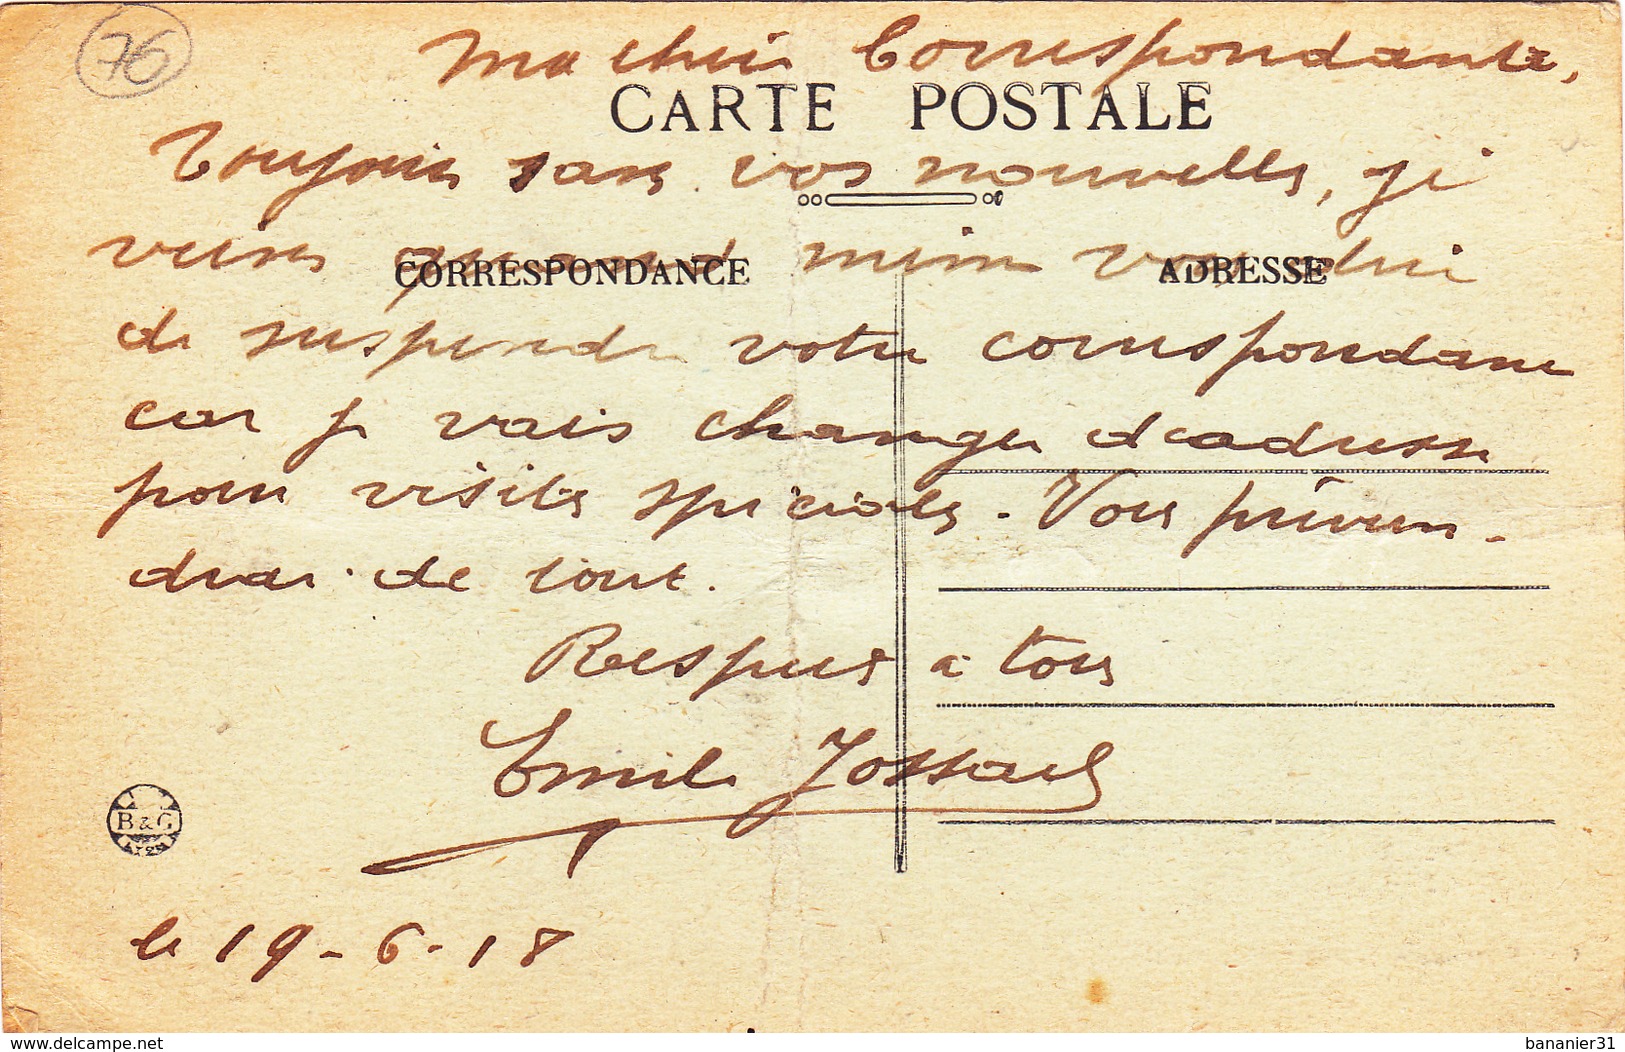 76
Ma chère Correspondante,
CARTE POSTALE
Toujours sans vos nouvelles, je
viens quand même vous dire
CORRESPONDANCE
ADRESSE
de suspendre votre correspondance
car je vais changer d'adresse
pour visites spéciales. Vous préviendrai de tout.
Respect à tous
Emile Jossard
B & G
le 19-6-18
www.delcampe.net
bananier31